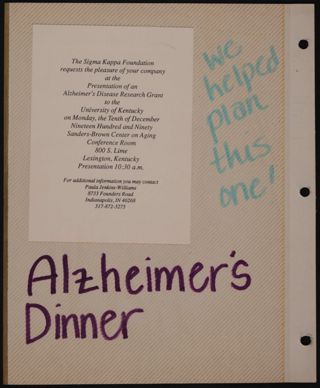 The Sigma Kappa Foundation
requests the pleasure of your company
at the
Presentation of an
Alzheimer's Disease Research Grant
to the
University of Kentucky
on Monday, the Tenth of December
Nineteen Hundred and Ninety
Sanders-Brown Center on Aging
Conference Room
800 S. Lime
Lexington, Kentucky
Presentation 10:30 a.m.
For additional information you may contact
Paula Jenkins-Williams
8733 Founders Road
Indianapolis, IN 46268
317-872-3275
we
helped
plan
this
one!
Alzheimer's
Dinner